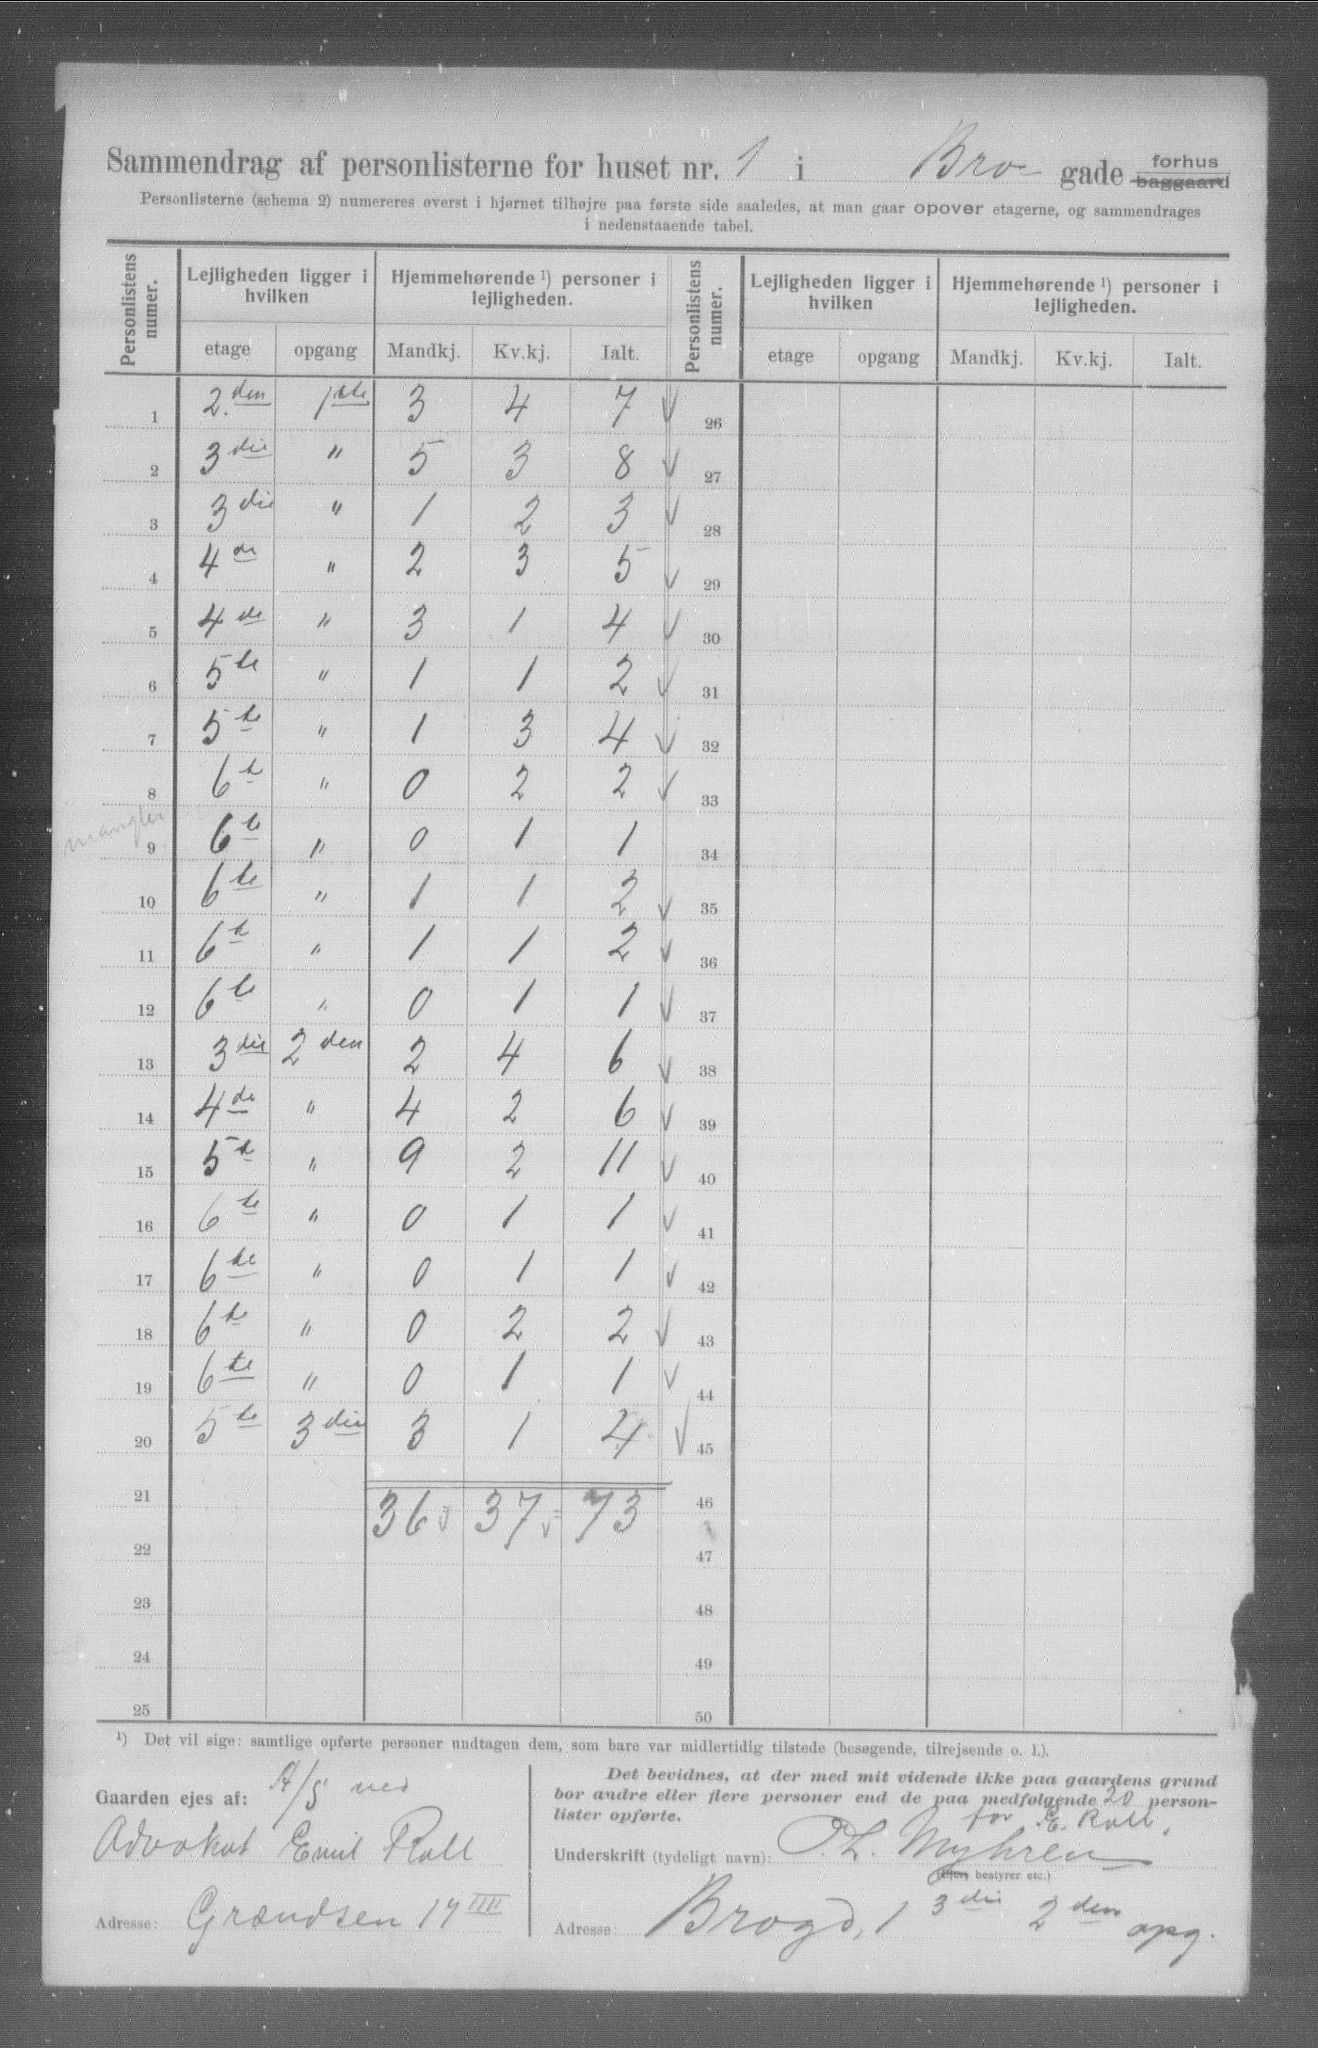 Sammendrag af personlisterne for huset nr. 1 i Bro- gade forhus baggaard
Personlisterne (schema 2) numereres øverst i hjørnet tilhøjre paa første side saaledes, at man gaar opover etagerne, og sammendrages
i nedenstaaende tabel.
Personlistens numer. Lejligheden ligger i hvilken Hjemmehørende ¹) personer i lejligheden. Personlistens numer. Lejligheden ligger i hvilken Hjemmehørende ¹) personer i lejligheden.
etage opgang Mandkj. Kv.kj. Ialt. etage opgang Mandkj. Kv.kj. Ialt.
1 2.den 1ste 3 4 7 26
2 3die " 5 3 8 27
3 3die " 1 2 3 28
4 4de " 2 3 5 29
5 4de " 3 1 4 30
6 5te " 1 1 2 31
7 5te " 1 3 4 32
8 6te " 0 2 2 33
mangler 9 6te " 0 1 1 34
10 6te " 1 1 2 35
11 6te " 1 1 2 36
12 6te " 0 1 1 37
13 3die 2den 2 4 6 38
14 4de " 4 2 6 39
15 5te " 9 2 11 40
16 6te " 0 1 1 41
17 6te " 0 1 1 42
18 6te " 0 2 2 43
19 6te " 0 1 1 44
20 5te 3die 3 1 4 45
21 36 37 73 46
22 47
23 48
24 49
25 50
¹) Det vil sige: samtlige opførte personer undtagen dem, som bare var midlertidig tilstede (besøgende, tilrejsende o. l.).
Gaarden ejes af: A/S ved
Advokat Emil Roll
Adresse: Grændsen 17 IIII
Det bevidnes, at der med mit vidende ikke paa gaardens grund
bor andre eller flere personer end de paa medfølgende 20 person-
lister opførte.
for E. Roll.
Underskrift (tydeligt navn): O. L. Myhren
(Ejer, bestyrer etc.)
Adresse: Brogd, 1 3die 2den opg.